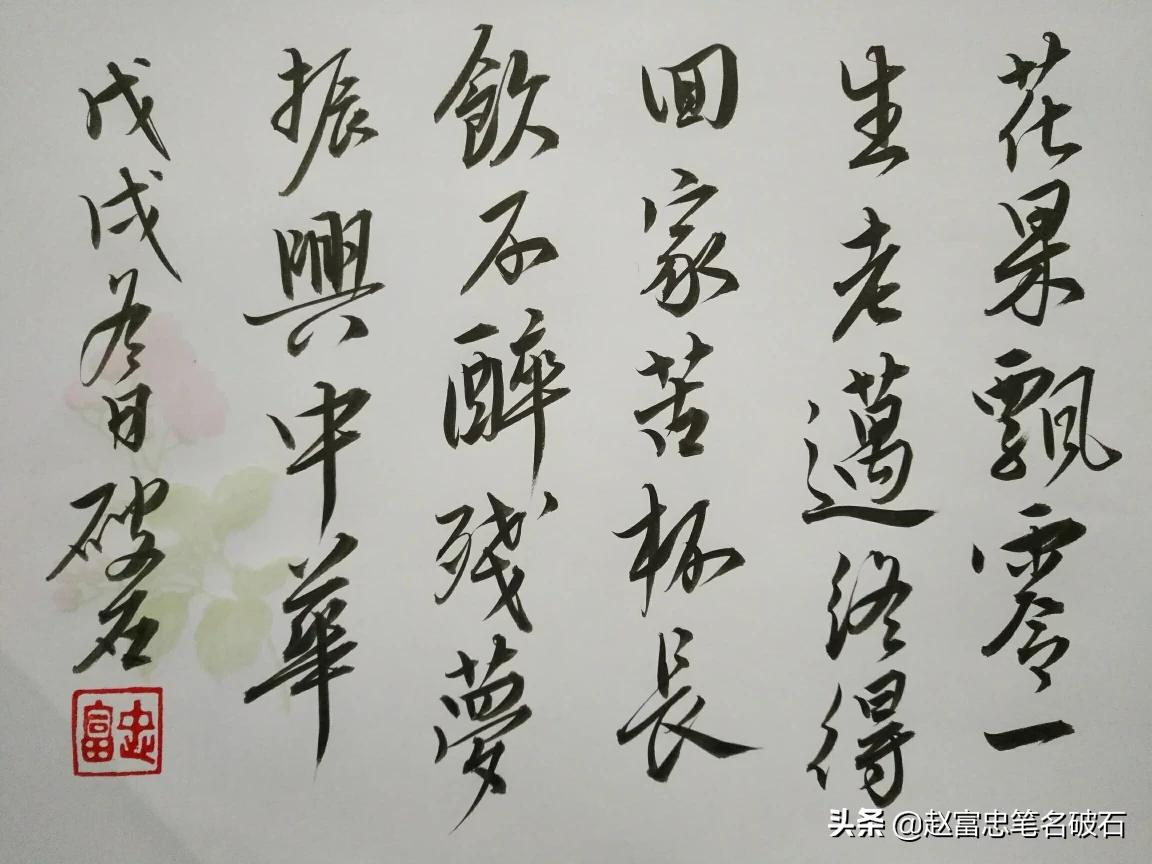 花果飄零一
生老邁終得
回家苦杯長
飲不醉残夢
振興中華
戊戌冬日破石
忠富
头条 @赵富忠笔名破石